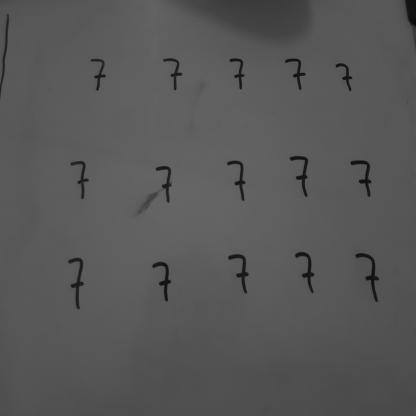 7 7 7 7 7
7 7 7 7 7
7 7 7 7 7